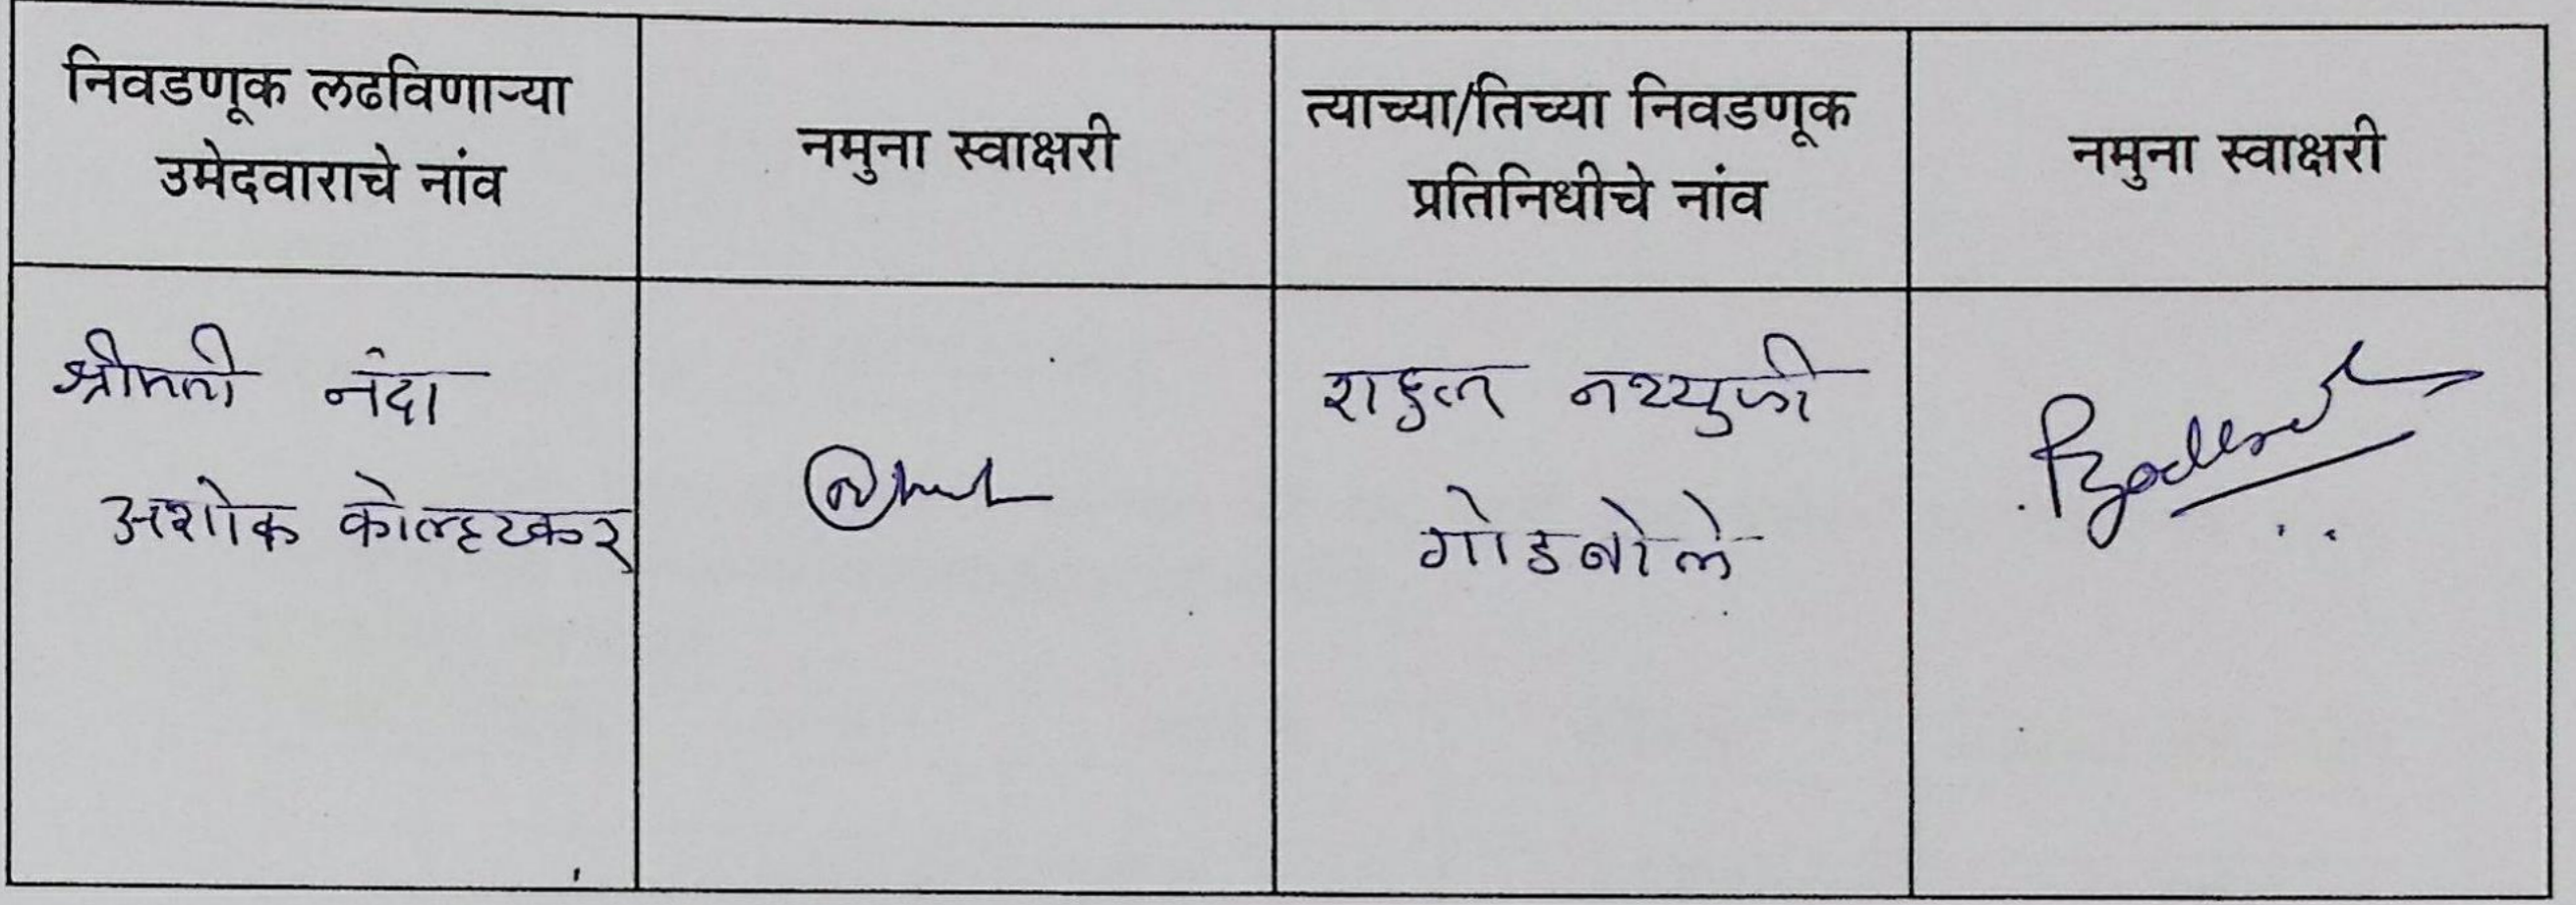 निवडणूक लढविणाऱ्या
उमेदवाराचे नांव
नमुना स्वाक्षरी
त्याच्या/तिच्या निवडणूक
प्रतिनिधीचे नांव
नमुना स्वाक्षरी
श्रीमती नंदा
अशोक कोल्हटकर
राहुल नथ्थुजी
गोडबोले